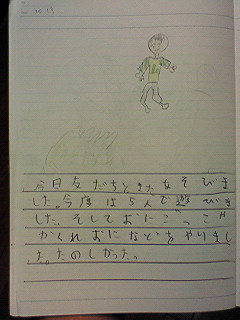 今日友だちとまたあそびま
した。今度は5人で遊びま
した。そしておにごっこや
かくれおになどをやりまし
た。たのしかった。